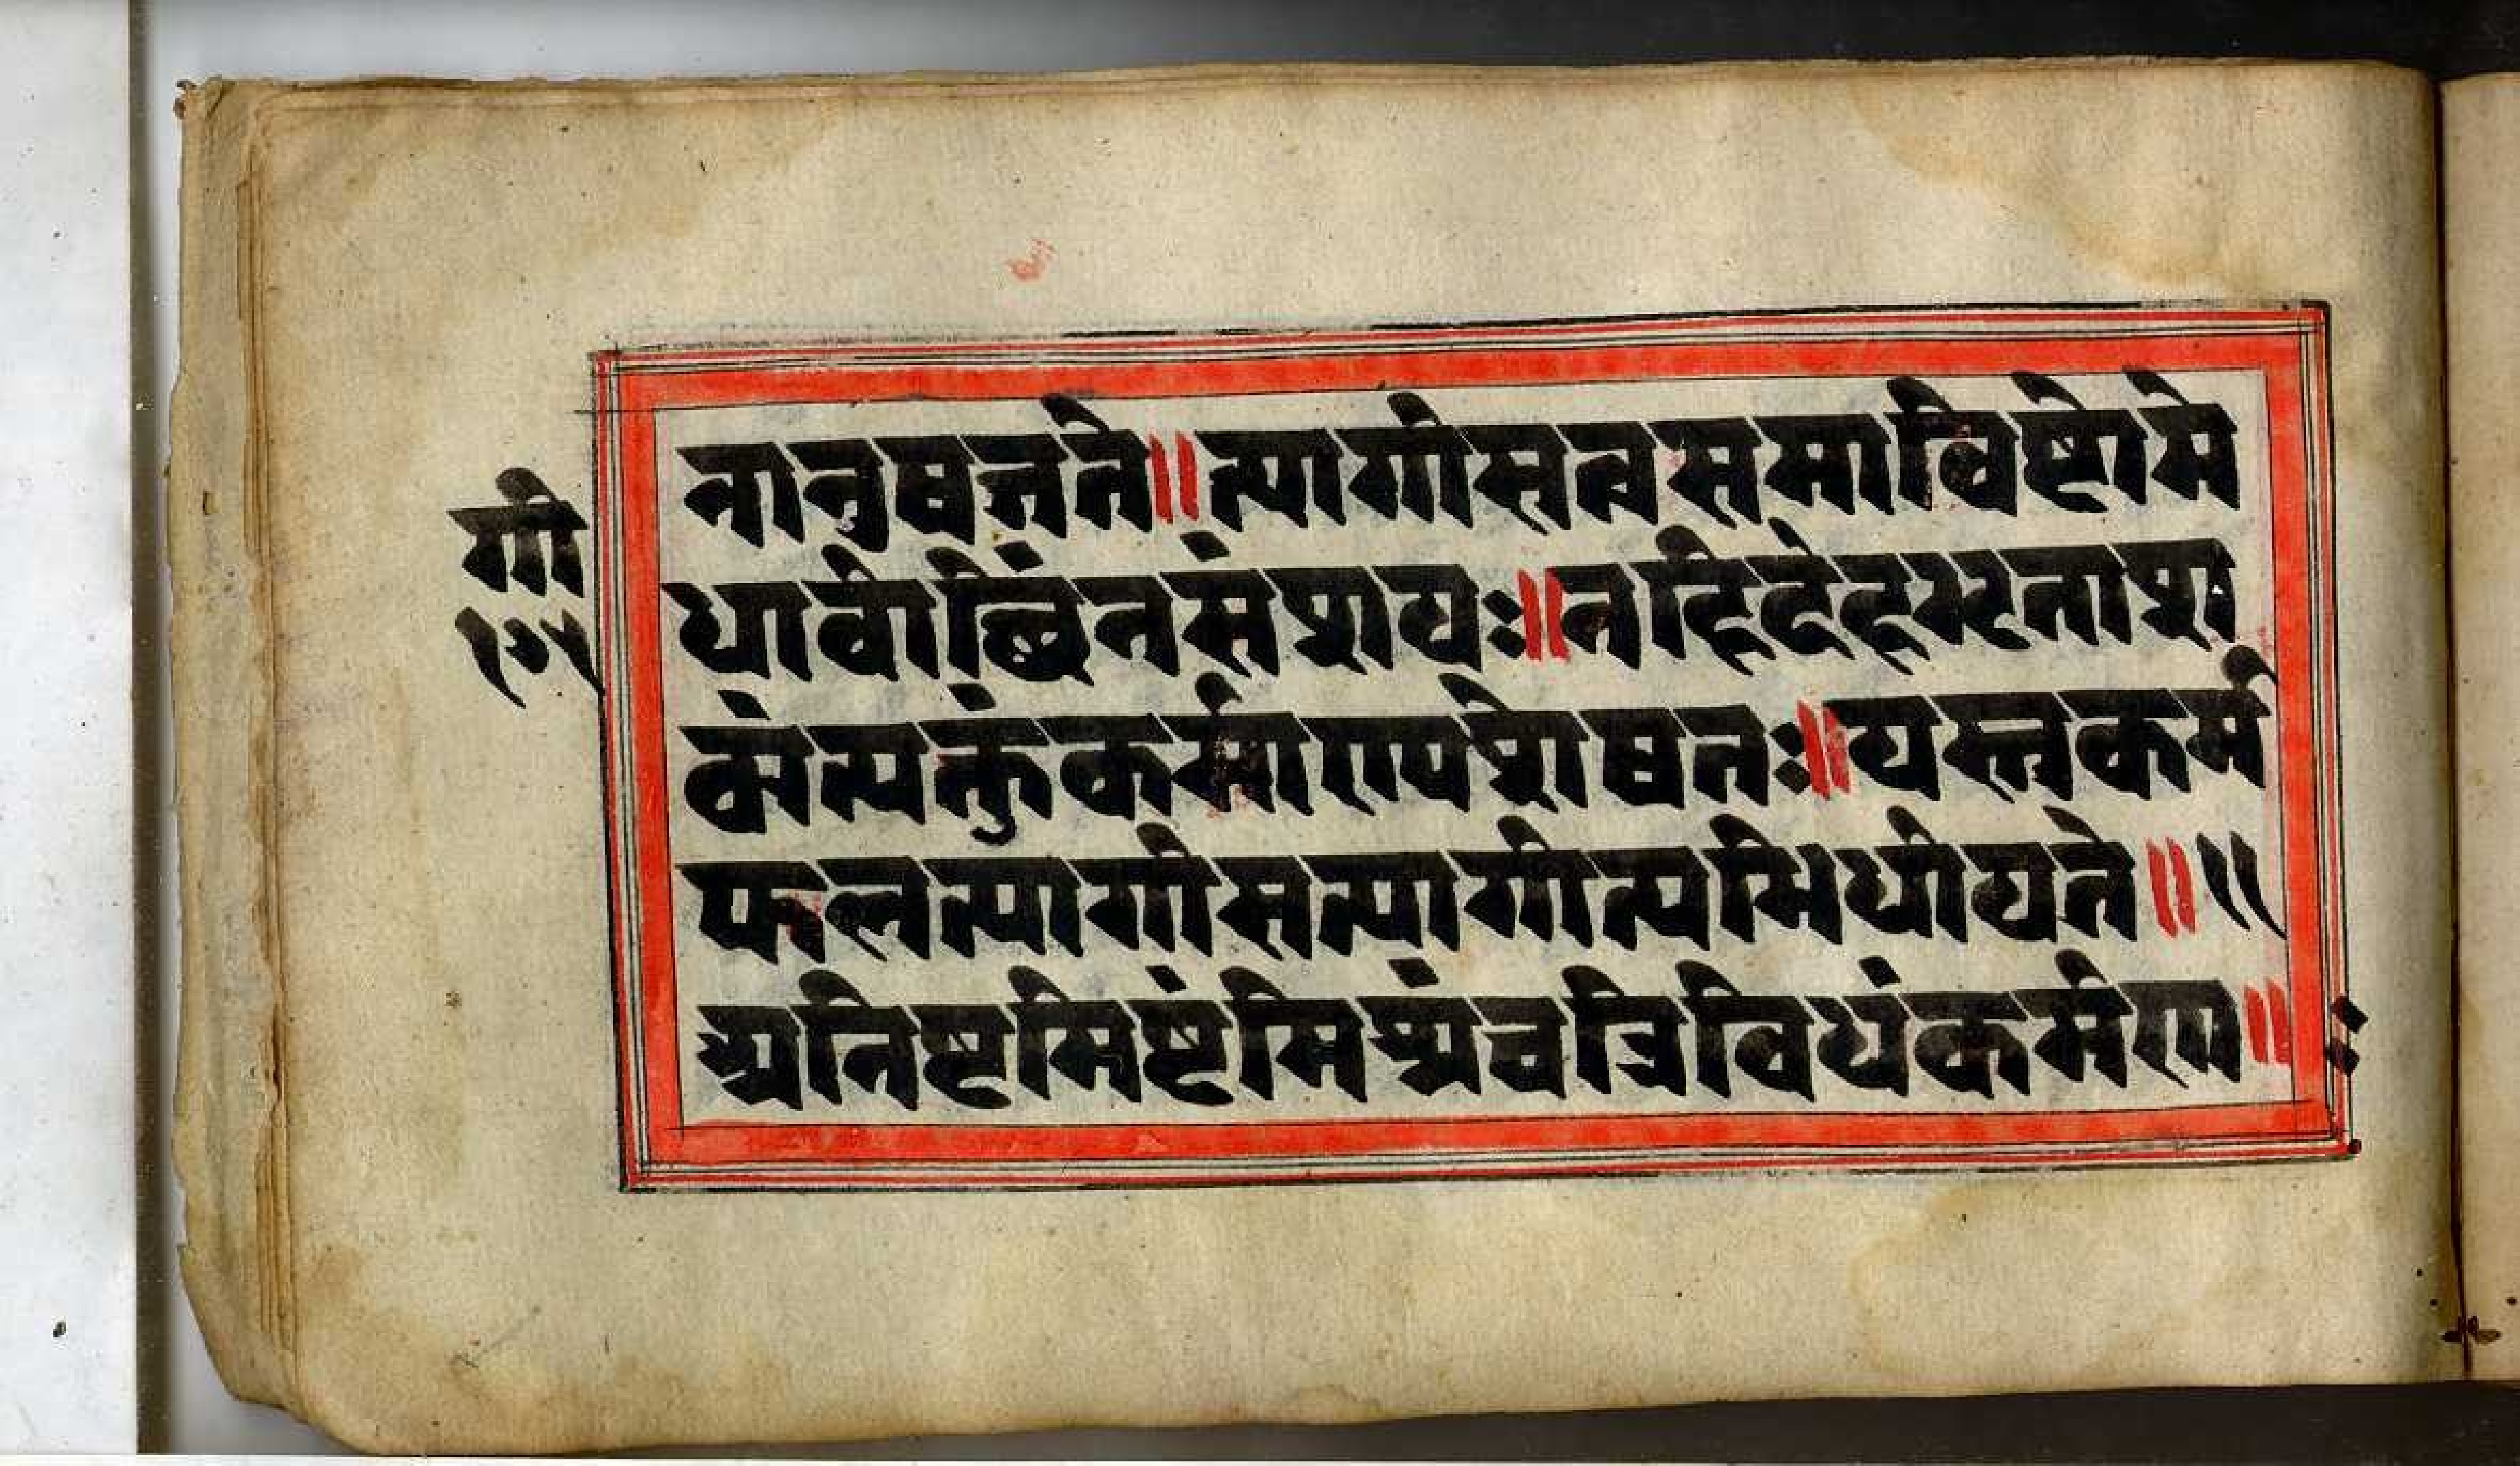 गी
१७५
नानुषज्जते॥त्यागीसत्वसमाविष्टोमे
धावीछिंनसंशयः॥नहिदेहभृताश
क्यंत्यक्तुंकर्माण्यशेषतः॥यस्तुकर्म
फलत्यागीसत्यागीत्यभिधीयते॥११
अनिष्टमिष्टंमिश्रंचत्रिविधंकर्मण॥ः